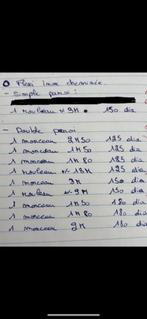 Flexi Inox cheminée.
- Simple paroi:
1 rouleau +/- 9M 150 dia
- Double paroi
1 morceau 2M50 125 dia
1 morceau 1M50 125 dia
1 morceau 1M80 125 dia
1 rouleau +/- 13M 125 dia
1 morceau 3M 150 dia
1 rouleau +/- 9M 150 dia
1 morceau 1M50 180 dia
1 morceau 1M80 180 dia
1 morceau 9M 180 dia